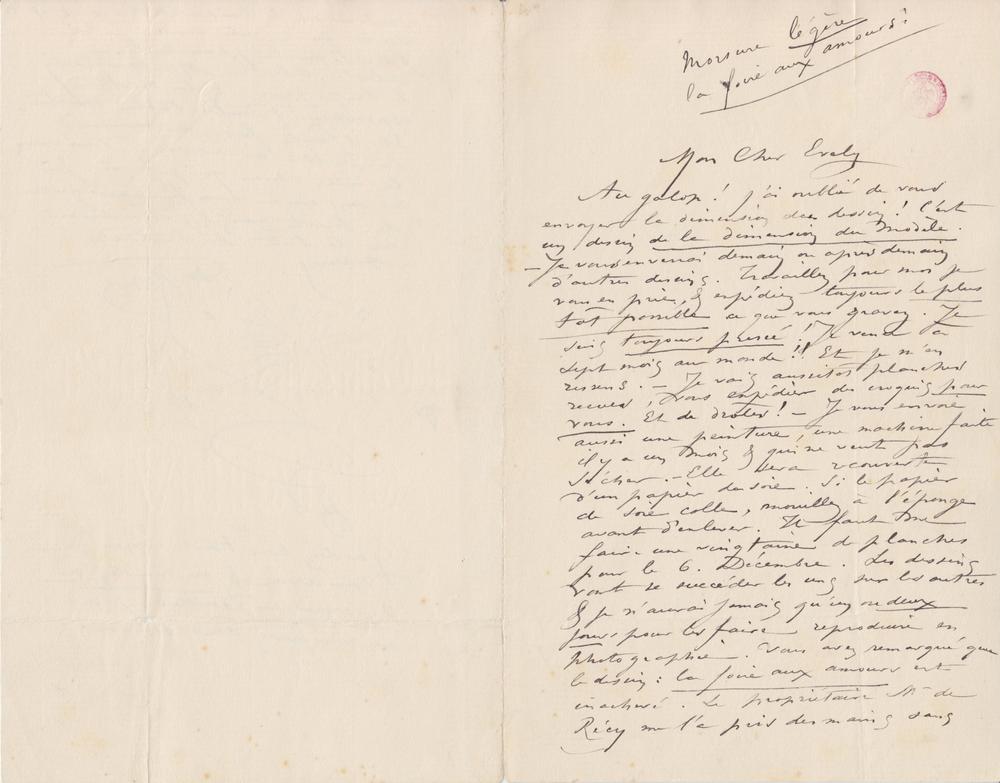 Morsure légère
la foire aux amours!
Mon Cher Evely
Au galop! j'ai oublié de vous
envoyer la dimension des dessin! C'est
un dessin de la dimension du modèle.
– Je vous enverrai demain ou après demain
d'autres dessins. Travaillez pour moi je
vous en prie, & expédiez toujours le plus
tôt possible ce que vous gravez. Je
suis toujours pressé! Je vends à
sept mois au monde!! Et je m'en
ressens. – Je vais aussitôt planches
recues, vous expédier des croquis pour
vous. Et de drôles! – Je vous envoie
aussi une peinture, une machine faite
il y a un mois & qui ne veut pas
sécher. – Elle sera recouverte
d'un papier de soie. Si le papier
de soie colle, mouillez à l'éponge
avant d'enlever. Il faut me
faire une vingtaine de planches
pour le 6. Décembre. Les dessins
vont se succéder les uns sur les autres
& je n'aurai jamais qu'un ou deux
jours pour les faire reproduire en
photographie. Vous avez remarqué que
le dessin: la foire aux amours est
inachevé. Le propriétaire Mr de
Récy me l'a pris des mains sans